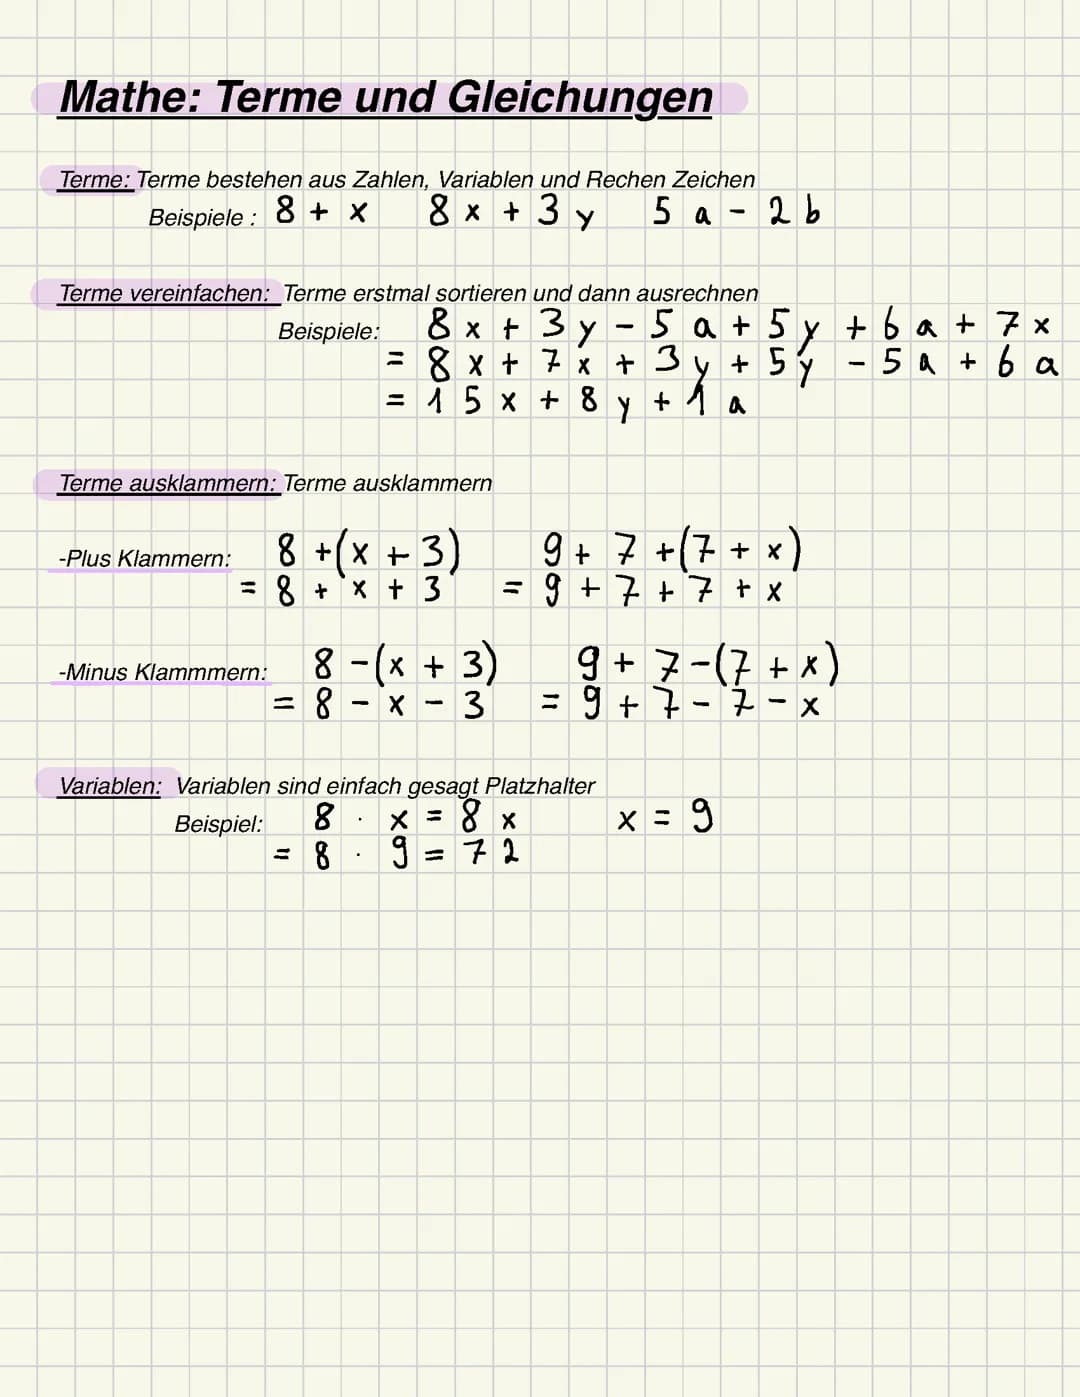 Mathe: Terme und Gleichungen
Terme: Terme bestehen aus Zahlen, Variablen und Rechen Zeichen
Beispiele : 8 + x 8 x + 3 y 5 a - 2 b
Terme vereinfachen: Terme erstmal sortieren und dann ausrechnen
Beispiele: 8 x + 3 y - 5 a + 5 y + 6 a + 7 x
= 8 x + 7 x + 3 y + 5 y - 5 a + 6 a
= 1 5 x + 8 y + 1 a
Terme ausklammern: Terme ausklammern
-Plus Klammern: 8 + (x + 3) 9 + 7 + (7 + x)
= 8 + x + 3 = 9 + 7 + 7 + x
-Minus Klammmern: 8 - (x + 3) 9 + 7 - (7 + x)
= 8 - x - 3 = 9 + 7 - 7 - x
Variablen: Variablen sind einfach gesagt Platzhalter
Beispiel: 8 · x = 8 x x = 9
= 8 · 9 = 7 2